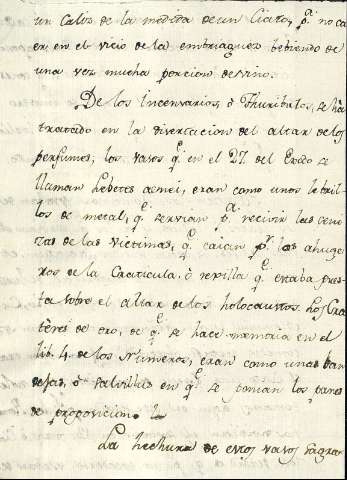 un Caliz de la medida de un Ciato, pª. no ca
er en el vicio de la embriaguez bebiendo de
una vez mucha porcion de vino.
De los Incensarios, ò Thuribulos, se hà
tratado en la disertacion del altar de los
perfumes; los vasos qᵉ. en el 27. del Exodo se
llaman Lebetes aenei, eran como unos lebril
los de metal, qᵉ. servian pª. recivir las ceni
zas de las victimas, qᵉ. caian pʳ. los ahuge
ros de la Craticula, ò rexilla qᵉ estaba pues
ta sobre el altar de los holocaustos. Los Cra
tères de oro, de qᵉ. se hace memoria en el
lib. 4. de los Numeros, eran como unas ban
dejas, ò salvillas en qᵉ se ponian los panes
de proposicion.
La hechura de estos vasos sagra